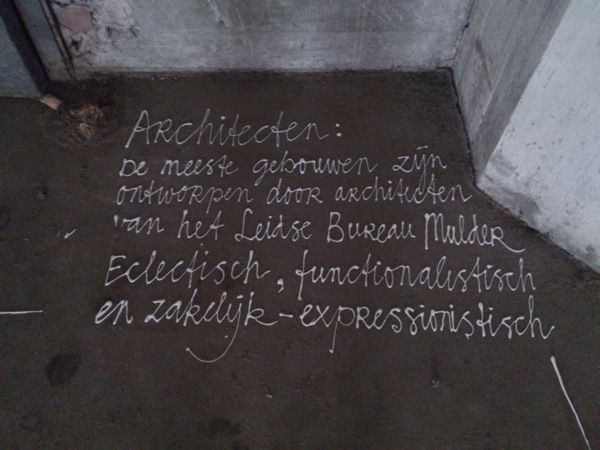 Architecten:
De meeste gebouwen zijn
ontworpen door architecten
van het Leidse Bureau Mulder
Eclectisch, functionalistisch
en zakelijk-expressionistisch